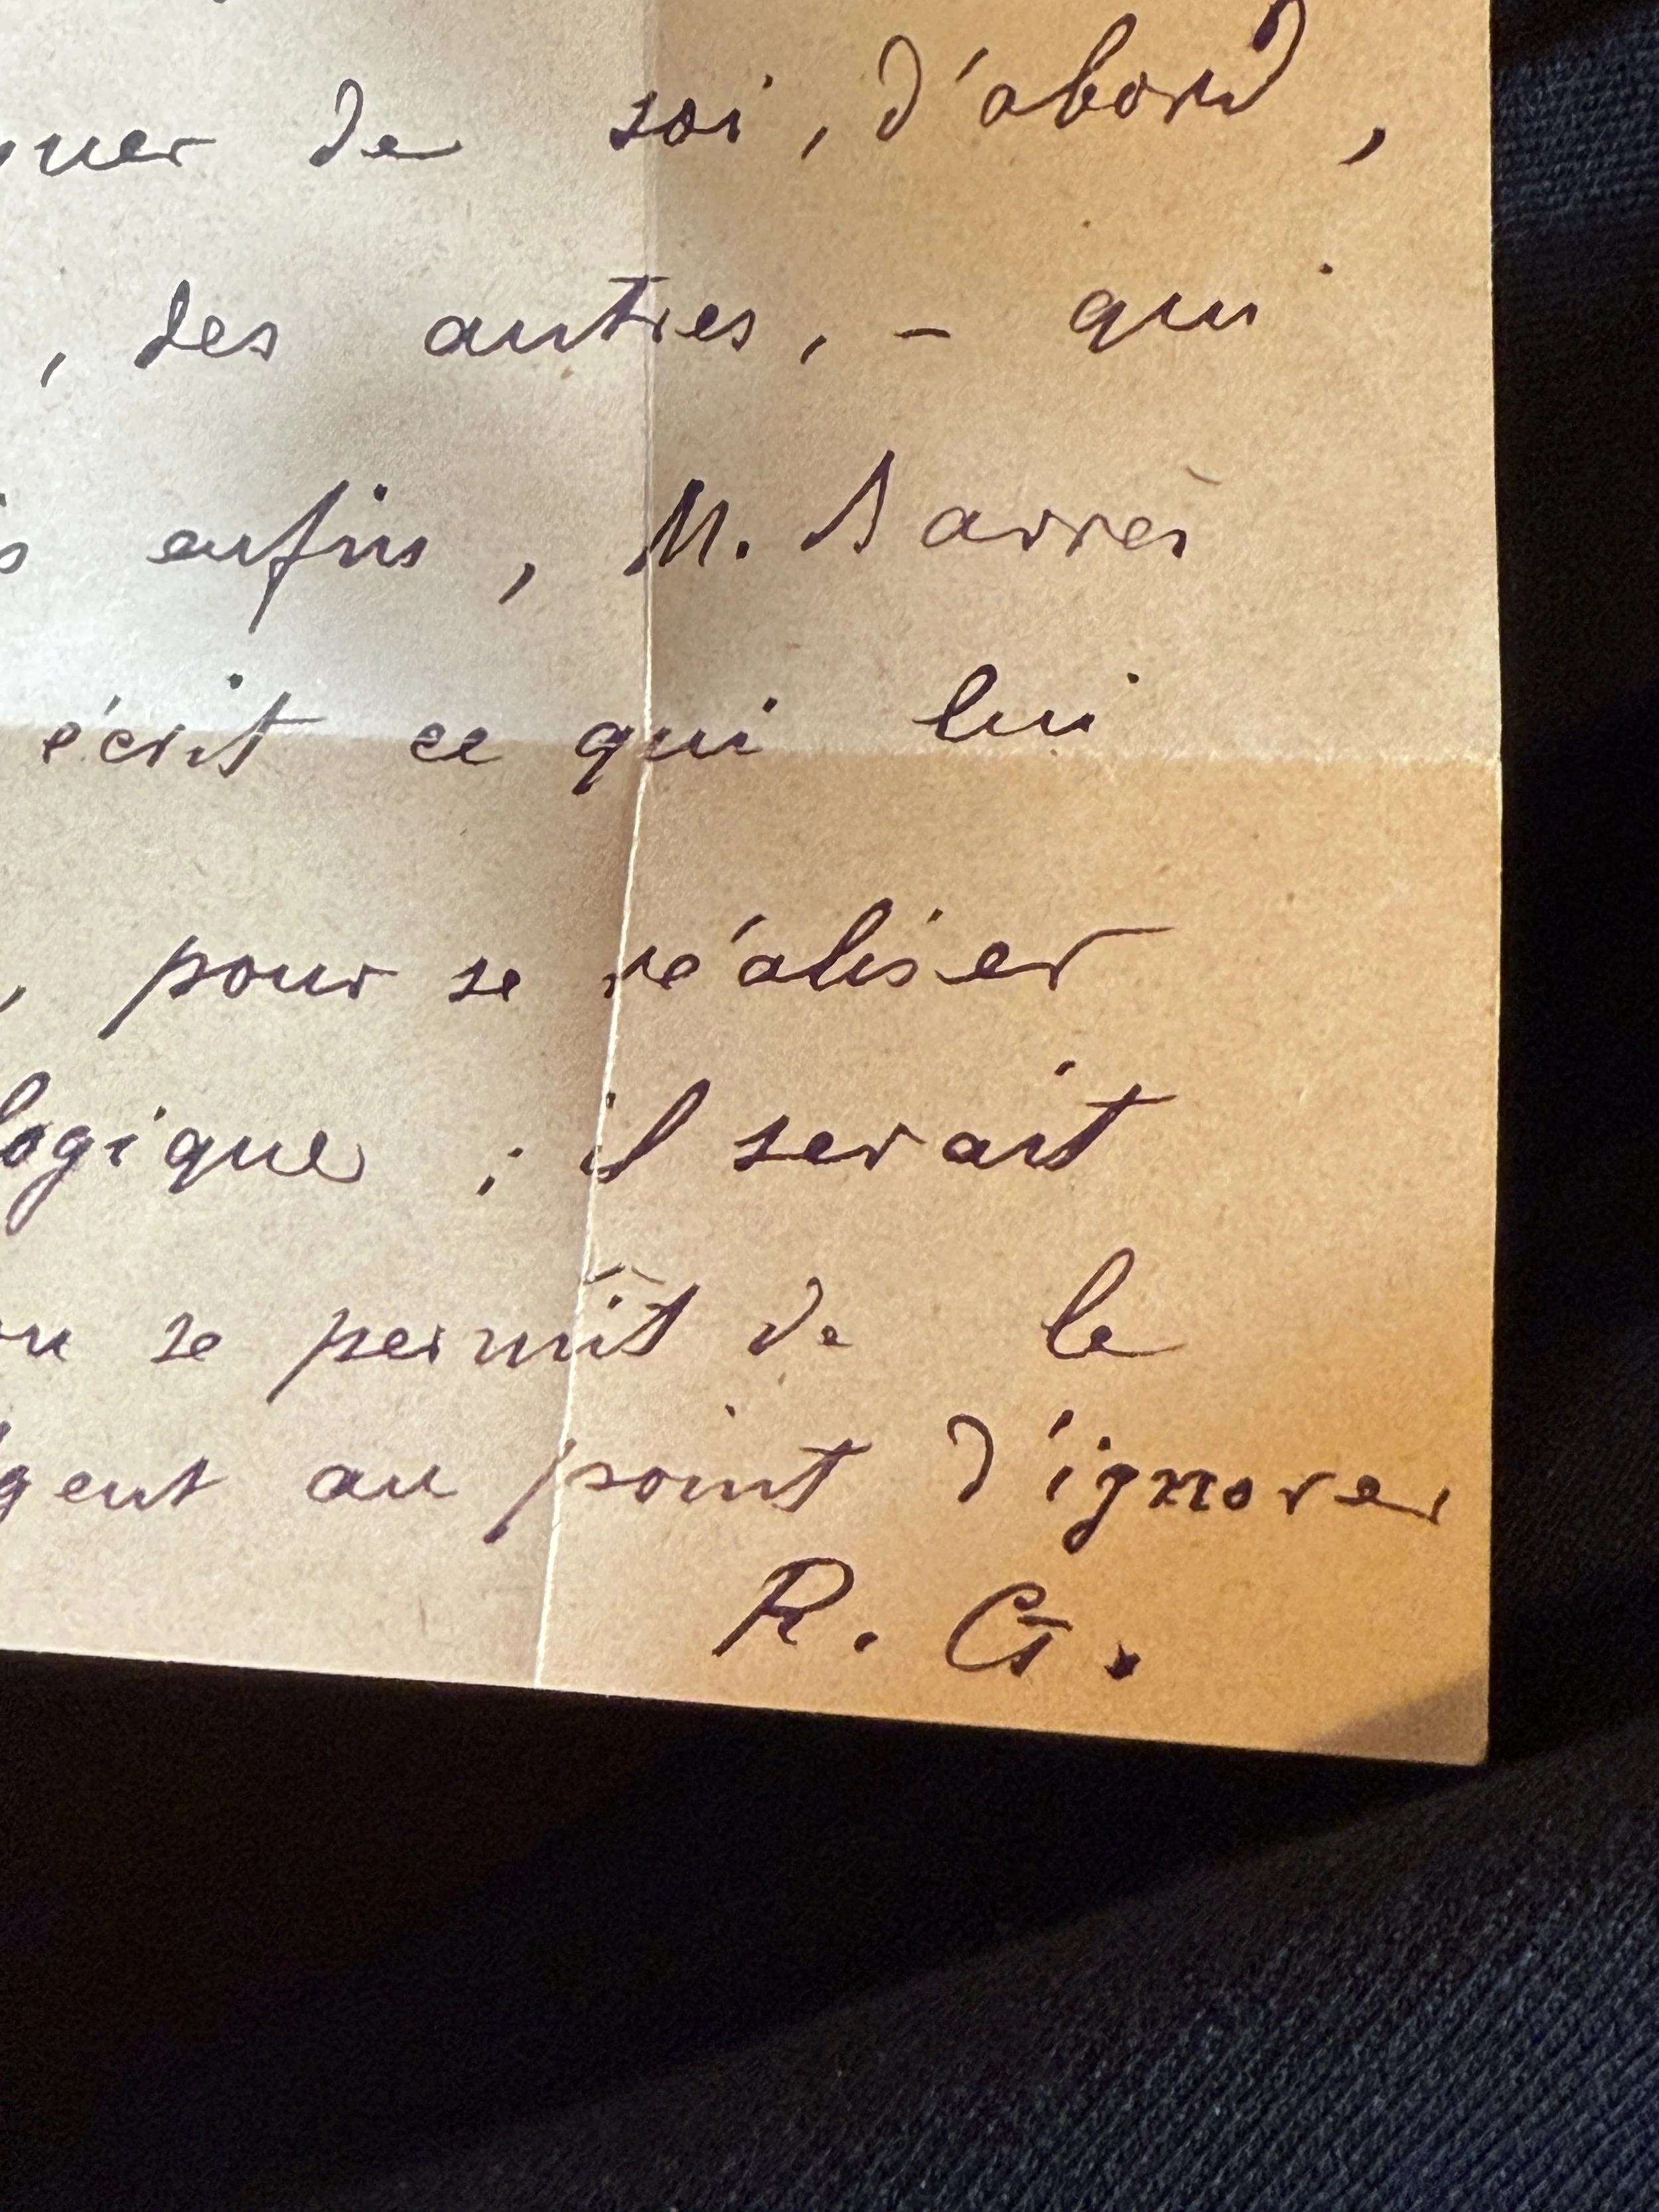 quer de soi, d'abord,
, des autres, – qui
s enfin, M. Barrès
écrit ce qui lui
, pour se réaliser
logique ; il serait
on se permît de le
gent au point d'ignorer
R. G.